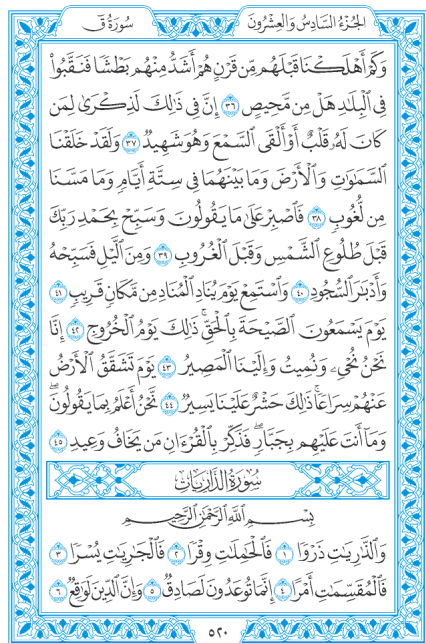 الجُزْءُ السَّادِسُ وَالعِشْرُونَ
سُورَةُ قٓ
وَكَمْ أَهْلَكْنَا قَبْلَهُم مِّن قَرْنٍ هُمْ أَشَدُّ مِنْهُم بَطْشًا فَنَقَّبُوا۟
فِى ٱلْبِلَٰدِ هَلْ مِن مَّحِيصٍ ٣٦ إِنَّ فِى ذَٰلِكَ لَذِكْرَىٰ لِمَن
كَانَ لَهُۥ قَلْبٌ أَوْ أَلْقَى ٱلسَّمْعَ وَهُوَ شَهِيدٌ ٣٧ وَلَقَدْ خَلَقْنَا
ٱلسَّمَٰوَٰتِ وَٱلْأَرْضَ وَمَا بَيْنَهُمَا فِى سِتَّةِ أَيَّامٍ وَمَا مَسَّنَا
مِن لُّغُوبٍ ٣٨ فَٱصْبِرْ عَلَىٰ مَا يَقُولُونَ وَسَبِّحْ بِحَمْدِ رَبِّكَ
قَبْلَ طُلُوعِ ٱلشَّمْسِ وَقَبْلَ ٱلْغُرُوبِ ٣٩ وَمِنَ ٱلَّيْلِ فَسَبِّحْهُ
وَأَدْبَٰرَ ٱلسُّجُودِ ٤٠ وَٱسْتَمِعْ يَوْمَ يُنَادِ ٱلْمُنَادِ مِن مَّكَانٍ قَرِيبٍ ٤١
يَوْمَ يَسْمَعُونَ ٱلصَّيْحَةَ بِٱلْحَقِّ ۚ ذَٰلِكَ يَوْمُ ٱلْخُرُوجِ ٤٢ إِنَّا
نَحْنُ نُحْىِۦ وَنُمِيتُ وَإِلَيْنَا ٱلْمَصِيرُ ٤٣ يَوْمَ تَشَقَّقُ ٱلْأَرْضُ
عَنْهُمْ سِرَاعًا ۚ ذَٰلِكَ حَشْرٌ عَلَيْنَا يَسِيرٌ ٤٤ نَّحْنُ أَعْلَمُ بِمَا يَقُولُونَ ۖ
وَمَآ أَنتَ عَلَيْهِم بِجَبَّارٍ ۖ فَذَكِّرْ بِٱلْقُرْءَانِ مَن يَخَافُ وَعِيدِ ٤٥
سُورَةُ الذَّارِيَاتِ
بِسْمِ ٱللَّهِ ٱلرَّحْمَٰنِ ٱلرَّحِيمِ
وَٱلذَّٰرِيَٰتِ ذَرْوًا ١ فَٱلْحَٰمِلَٰتِ وِقْرًا ٢ فَٱلْجَٰرِيَٰتِ يُسْرًا ٣
فَٱلْمُقَسِّمَٰتِ أَمْرًا ٤ إِنَّمَا تُوعَدُونَ لَصَادِقٌ ٥ وَإِنَّ ٱلدِّينَ لَوَٰقِعٌ ٦
٥٢٠